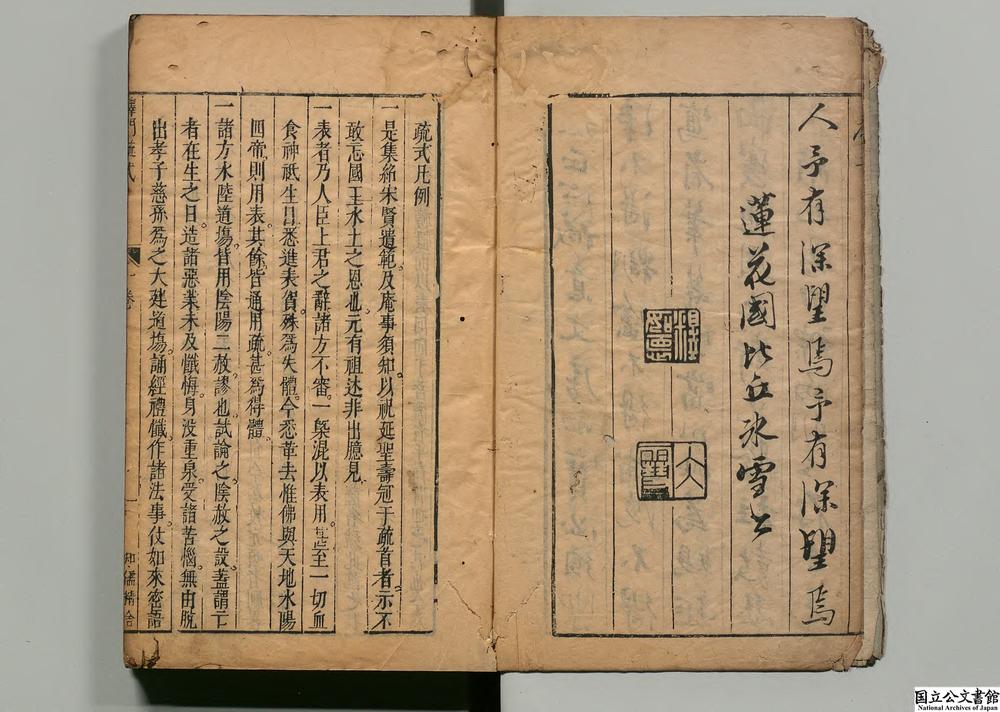 人予有深望焉予有深望焉
蓮花國比丘氷雪
疏式凡例
一是集紹宋賢遺範及庵事須知以祝延聖壽冠于疏首者示不
敢忘國王水土之恩也元有祖述非出臆見
一表者乃人臣上君之辭諸方不審一槩混以表用甚至一切血
食神祇生日悉進表賀殊為失體今悉革去惟佛與天地水陽
四帝則用表其餘皆通用疏甚為得體
一諸方水陸道塲皆用陰陽二赦謬也試論之陰赦之設蓋謂亡
者在生之日造諸惡業未及懺悔身没重泉受諸苦惱無由脫
出孝子慈孫為之大建道塲誦經禮懺作諸法事仗如來密語
一卷
知儒精舍
国立公文書館
National Archives of Japan